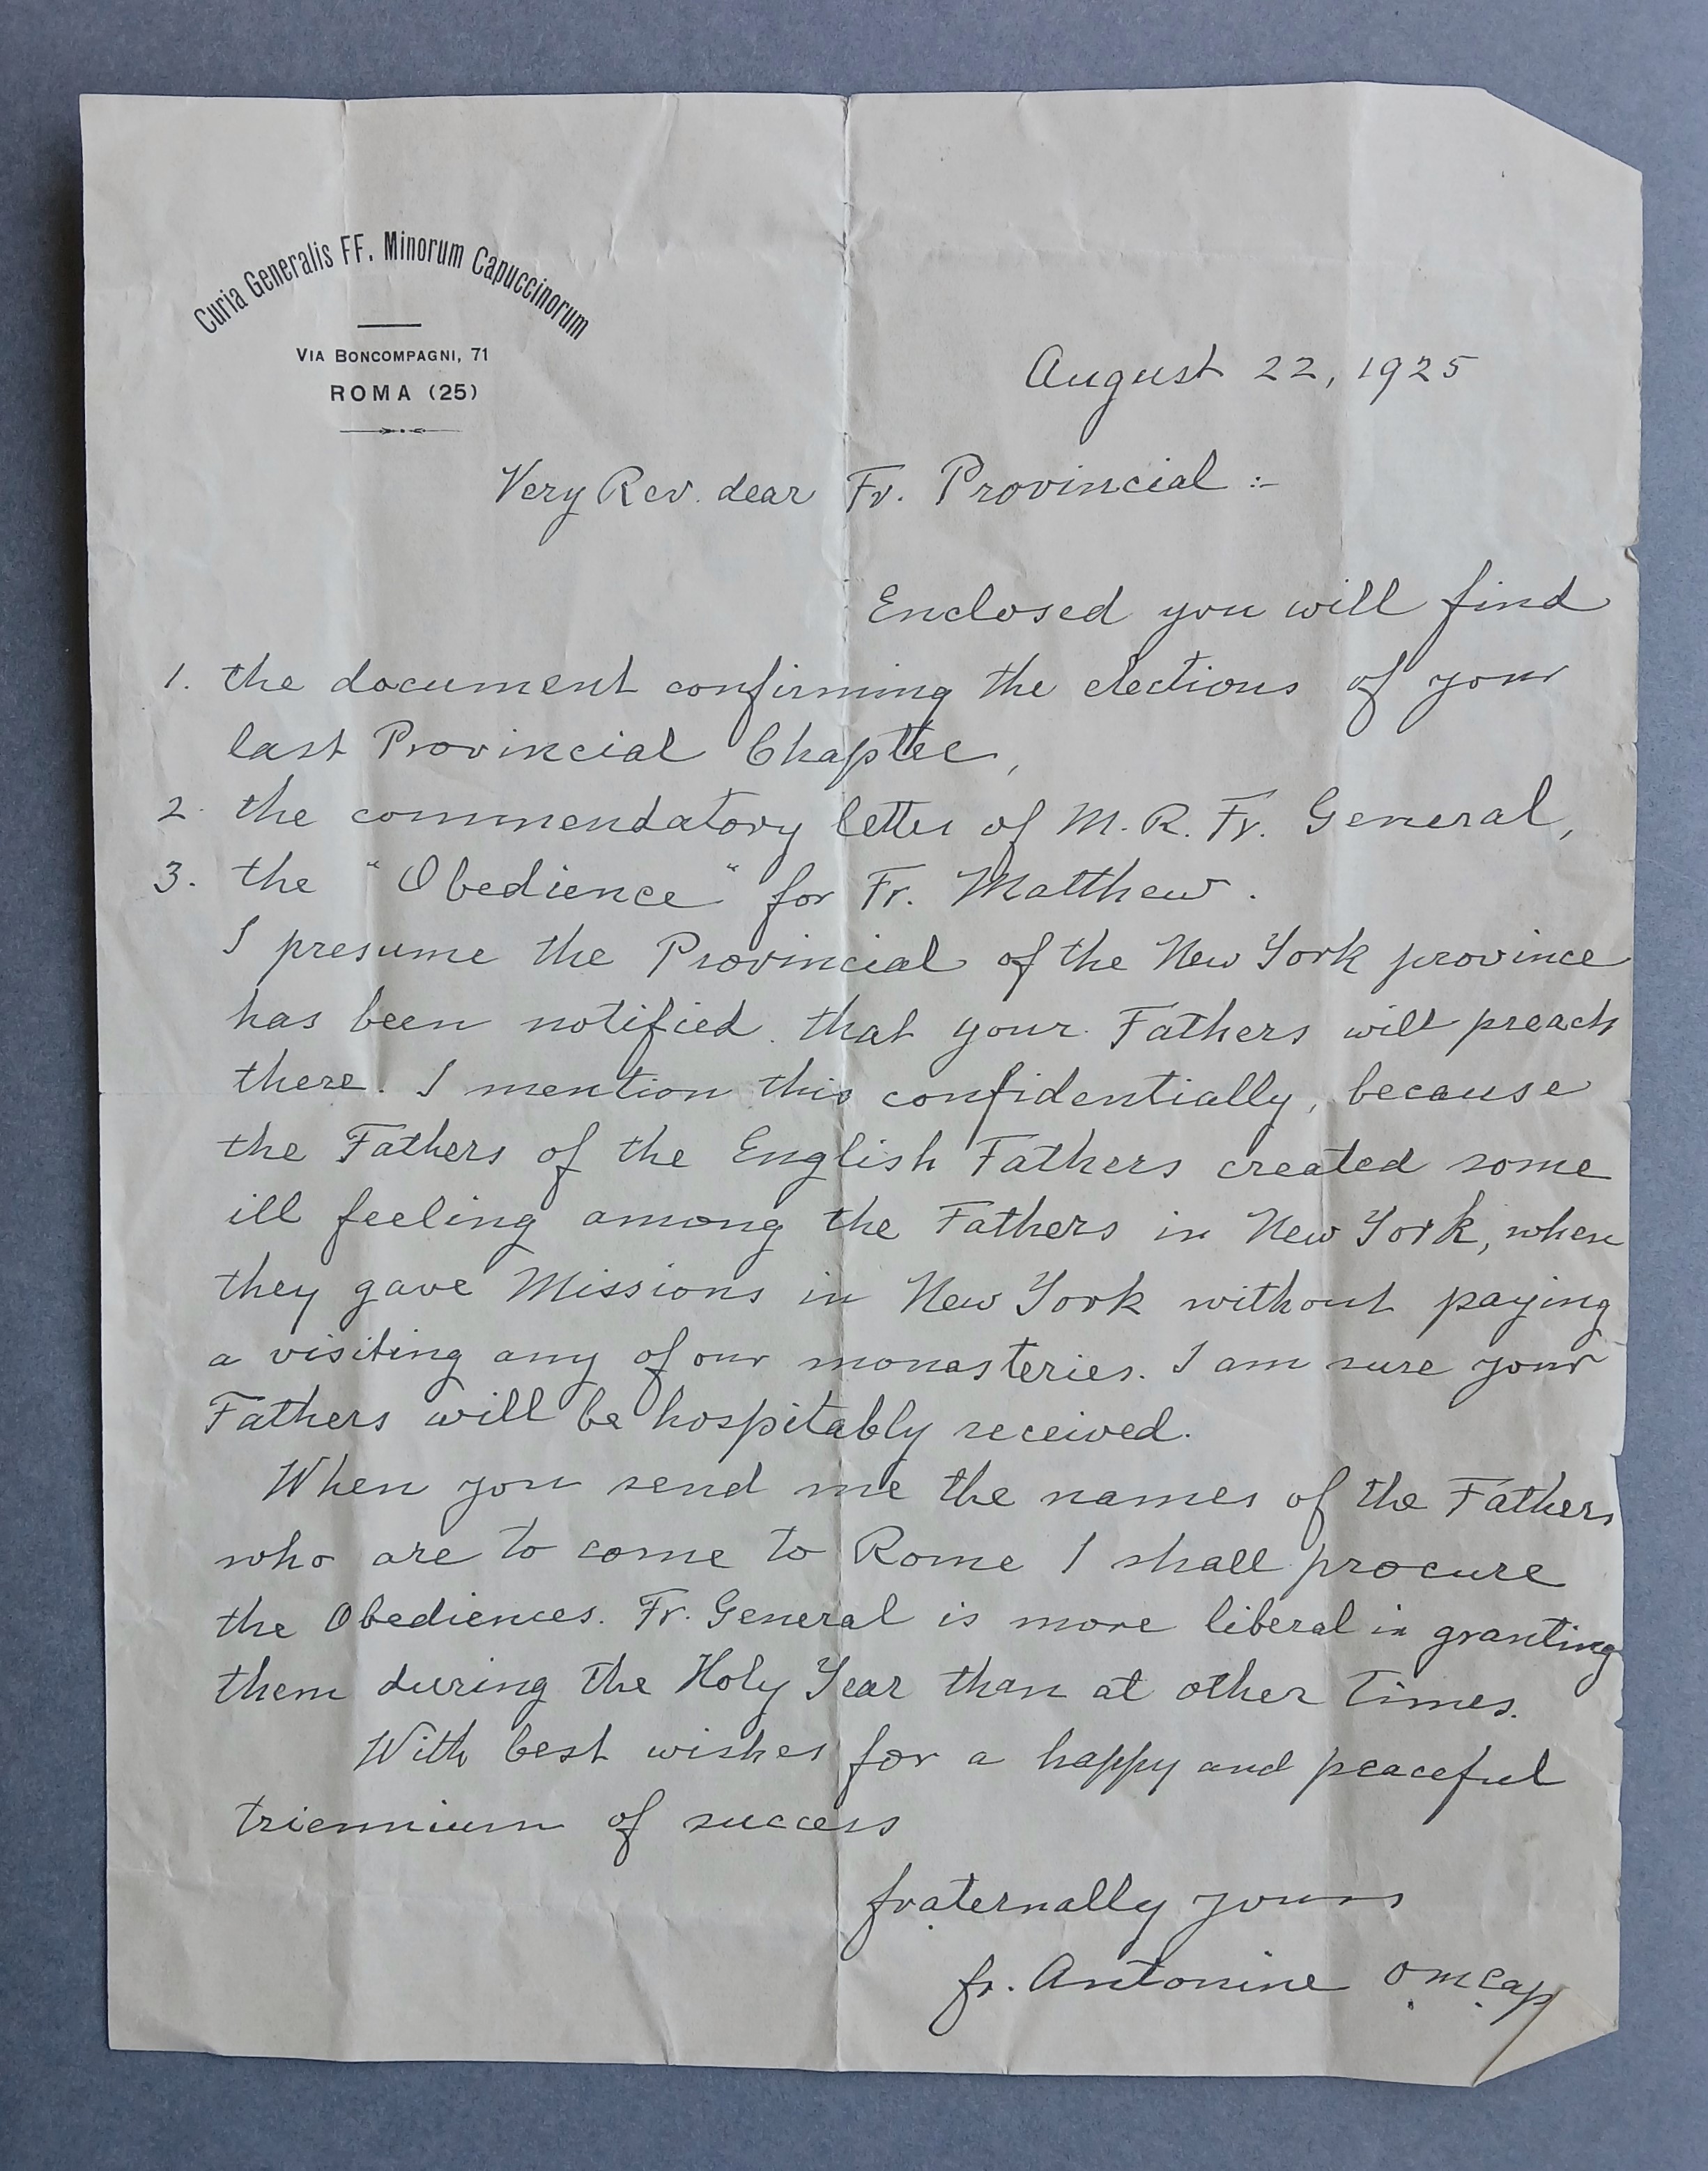 Curia Generalis FF. Minorum Capuccinorum
VIA BONCOMPAGNI, 71
ROMA (25)
August 22, 1925
Very Rev. dear Fr. Provincial :-
Enclosed you will find
1. the document confirming the elections of your
last Provincial Chapter,
2. the commendatory letter of M. R. Fr. General,
3. the "Obedience" for Fr. Matthew.
I presume the Provincial of the New York province
has been notified that your Fathers will preach
there. I mention this confidentially, because
the Fathers of the English Fathers created some
ill feeling among the Fathers in New York, when
they gave Missions in New York without paying
a visiting any of our monasteries. I am sure your
Fathers will be hospitably received.
When you send me the names of the Fathers
who are to come to Rome I shall procure
the Obediences. Fr. General is more liberal in granting
them during the Holy Year than at other times.
With best wishes for a happy and peaceful
triennium of success
fraternally yours
fr. Antonine O.M.Cap